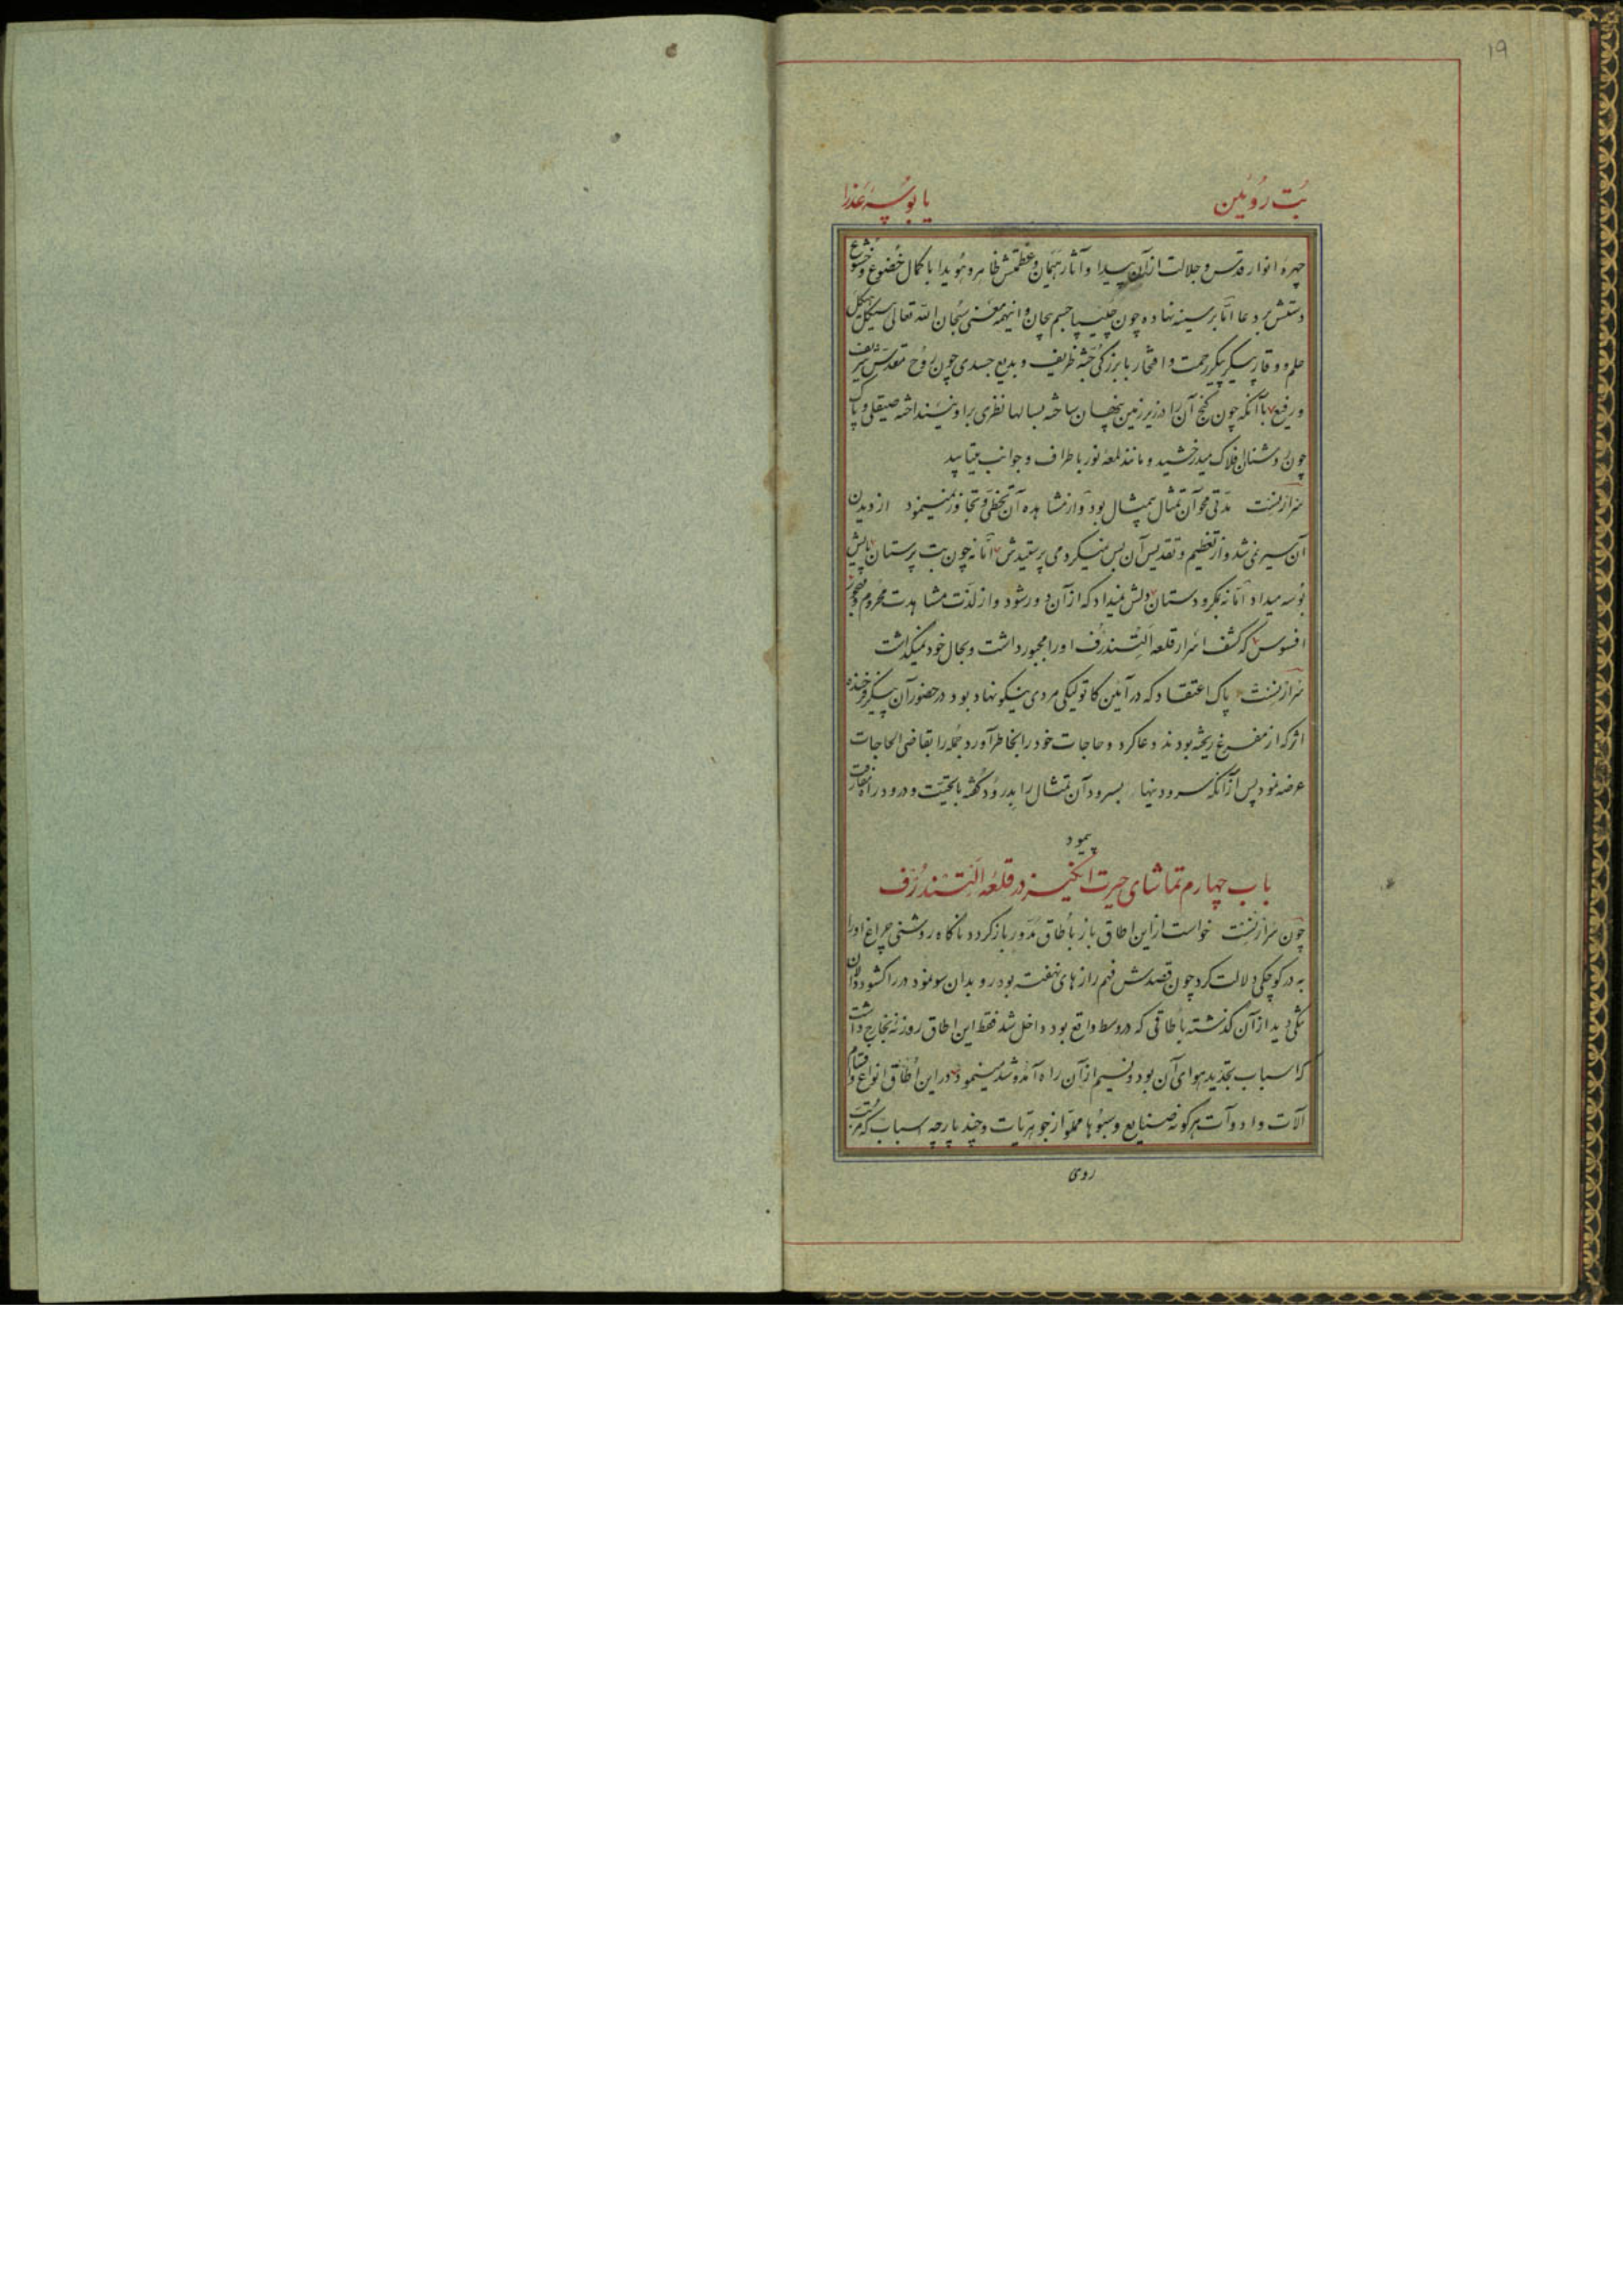 ١٩
بُت رُوئین یا بُوسهٔ عذرا
چهره انوار قدس و جلالت از آن پیدا و آثار هیمان و عظمتش ظاهر و هُویدا با کمال خُضوع و خُشوع
دستش بر دعا امّا بر سینه نهاده چون چلیپا جسم بیجان و اینهمه معنی سُبحان الله تعالی هیکل
حلم و وقار پیکر رحمت و افتخار با بزرگی جُثّه ظریف و بدیع جسدی چون رُوح مقدّس شریف
و رفیع با آنکه چون گنج آن را در زیر زمین پنهان ساخته بسالها نظری بر او نینداخته صیقلی و پاک
چون روشنان افلاک میدرخشید و مانند لمعهٔ نور باطراف و جوانب میتابید
سرارنست مدّتی محو آن تمثال بیمثال بود و از مشاهده آن تخطّی و تجاوز نمینمود از دیدن
آن سیر نمی شد و از تعظیم و تقدیس آن بس نمیکرد می پرستیدش امّا نه چون بت پرستان پایش
بُوسه میداد امّا نه بمکر و دستان دلش نمیداد که از آن دور شود و از لذّت مشاهدت محرُوم و مهجور
افسوس که کشف اسرار قلعه اَلتِسندرُف او را مجبور داشت و بحال خود نمیگذاشت
سرارنست پاک اعتقاد که در آیین کاتولیکی مردی نیکو نهاد بود در حضور آن پیکر فرخنده
اثر که از مفرغ ریخته بودند دعا کرد و حاجات خود را بخاطر آورد جُمله را بقاضی الحاجات
عرضه نمود پس از آنکه سرود بسرود آن تمثال را بدرُود گفته با تحیّت و درود راه مفارقت
پیمود
باب چهارم تماشای حیرت انگیز در قلعه اَلتِسندرُف
چون سرارنست خواست از این اطاق باز باُطاق مُدوّر باز گردد ناگاه روشنی چراغ او را
به در کوچکی دلالت کرد چون قصدش فهم رازهای نهفت بود رو بدان سو نمود در را گشود دالان
تنگی دید از آن گذشته باُطاقی که در وسط واقع بود داخل شد فقط این اطاق روزنه بخارج داشت
که اسباب تجدید هوای آن بود و نسیم از آن راه آمد و شد مینمود در این اُطاق انواع و اقسام
آلات و ادوات هرگونه صنایع و سبُوها مملوّ از جوهریّات و چند پارچه اسباب که مُرتّب
روی